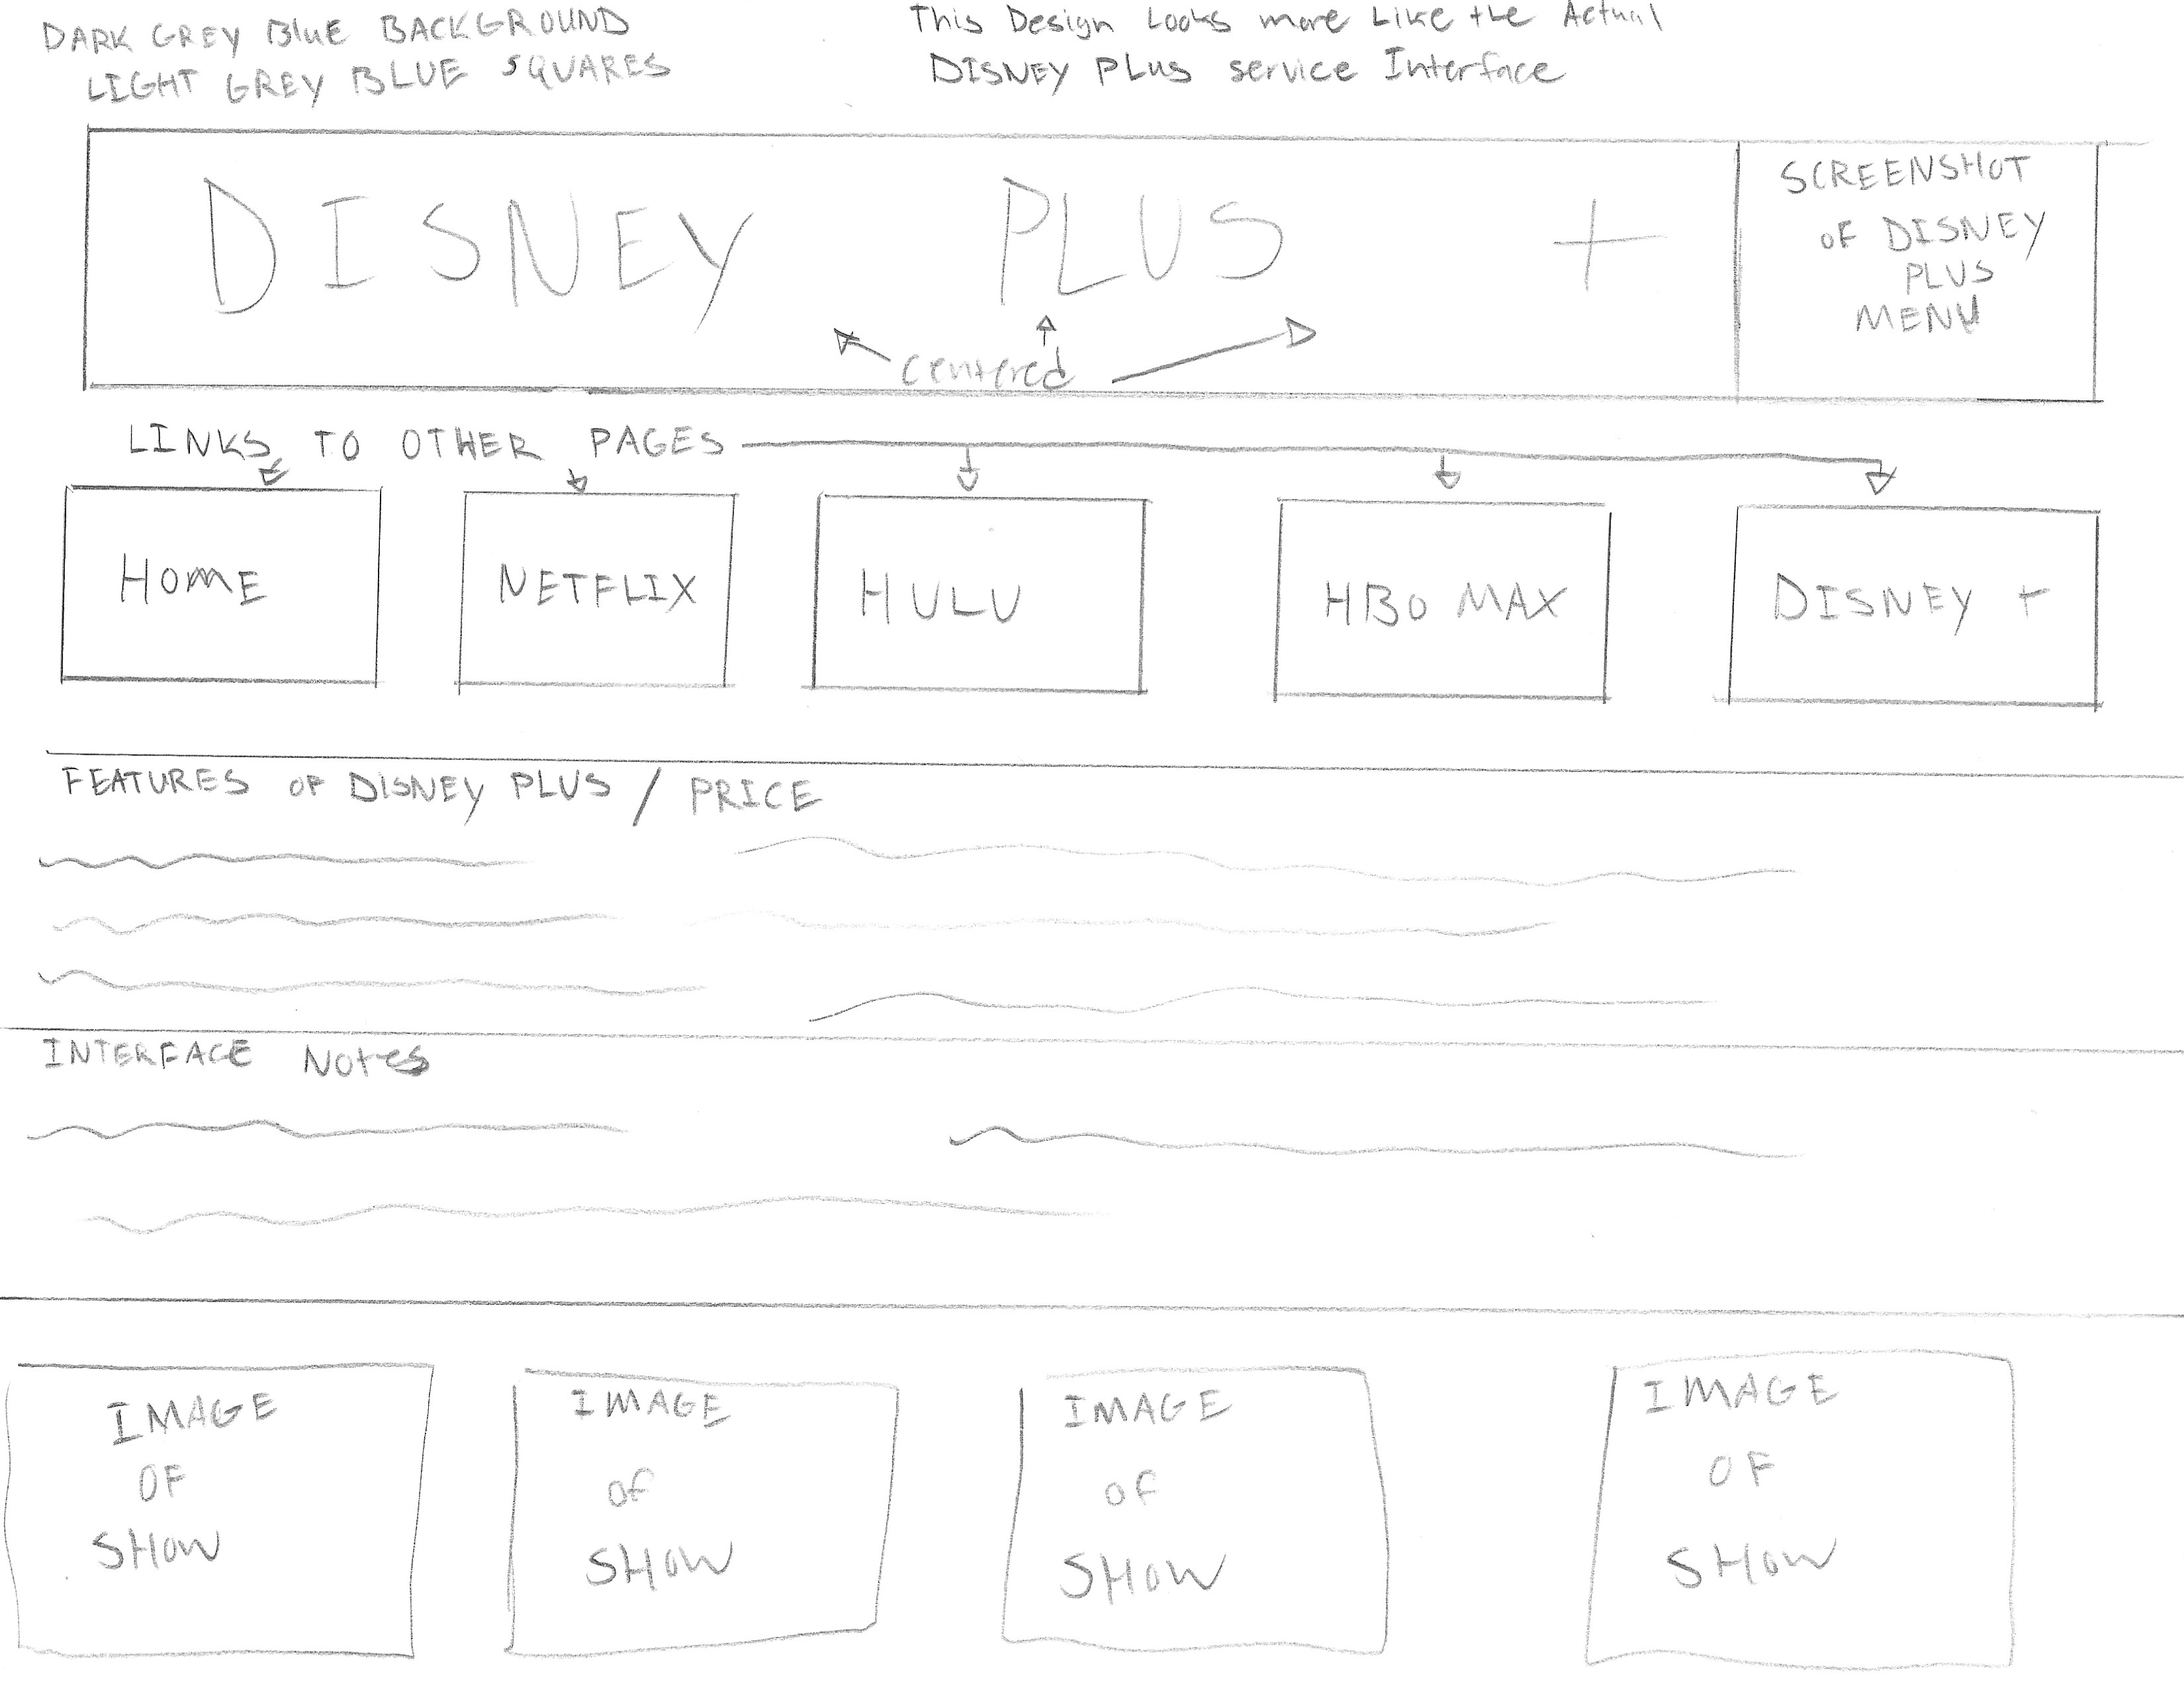 DARK GREY BluE BACKGROUND
LIGHT GREY BLUE SQUARES
This Design Looks more Like the Actual
DISNEY PLus service Interface
DISNEY PLUS +
SCREENSHOT
OF DISNEY
PLUS
MENU
centered
LINKS TO OTHER PAGES
HOME
NETFLIX
HULU
HBO MAX
DISNEY +
FEATURES OF DISNEY PLUS / PRICE
INTERFACE Notes
IMAGE
OF
SHOW
IMAGE
OF
SHOW
IMAGE
OF
SHOW
IMAGE
OF
SHOW